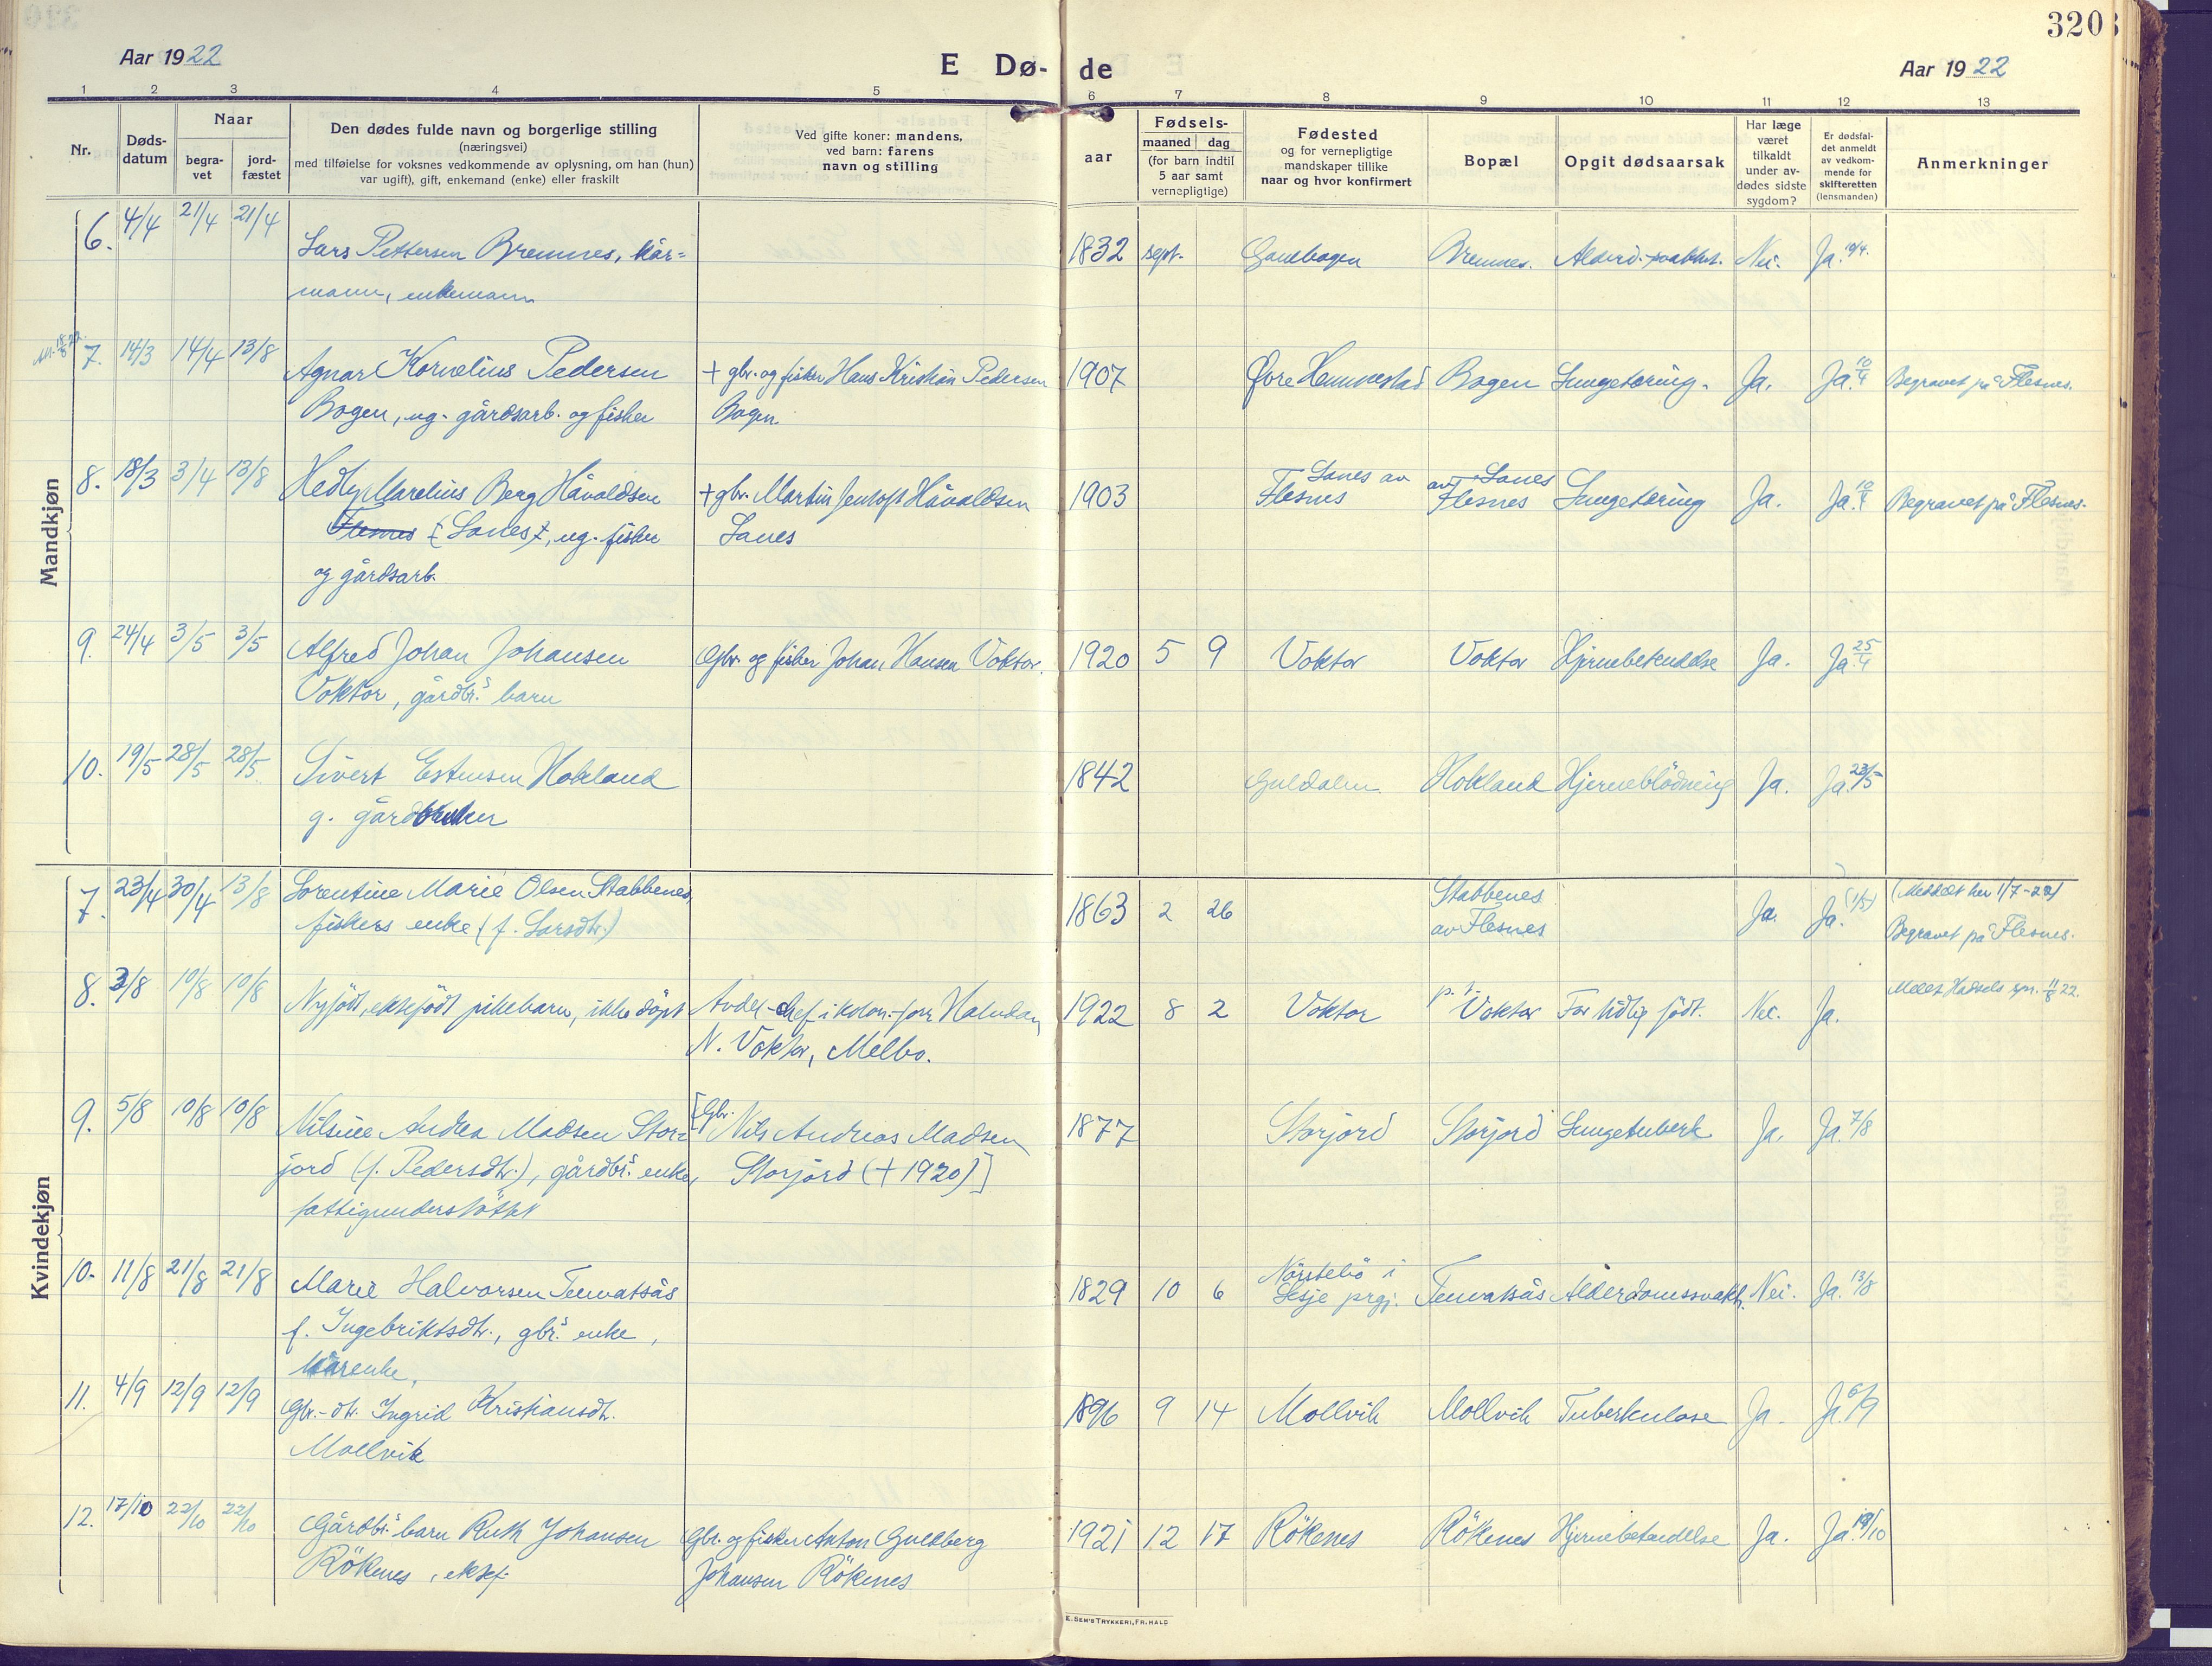 320
Aar 1922
E Dø-
de
Aar 1922
1 2 3 4 5 6 7 8 9 10 11 12 13
Nr.
Døds-
datum
Naar
begra-
vet
jord-
fæstet
Den dødes fulde navn og borgerlige stilling
(næringsvei)
med tilføielse for voksnes vedkommende av oplysning, om han (hun)
var ugift), gift, enkemand (enke) eller fraskilt
Ved gifte koner: mandens,
ved barn: farens
navn og stilling
Fødsels-
aar
maaned dag
(for barn indtil
5 aar samt
vernepligtige)
Fødested
og for vernepligtige
mandskaper tillike
naar og hvor konfirmert
Bopæl
Opgit dødsaarsak
Har læge
været
tilkaldt
under av-
dødes sidste
sygdom?
Er dødsfal-
det anmeldt
av vedkom-
mende for
skifteretten
(lensmanden)
Anmerkninger
Mandkjøn
6. 4/4 21/4 21/4 Lars Pettersen Bremnes, kår= 1832 sept. Bremnes. Alderd. svakhet. Nei. Ja.
mann, enkemann
7. 14/3 14/4 13/8 Agnar Kornelius Pedersen + gbr. og fisker Hans Kristian Pedersen 1907 Øvre Hemmestad Bogen Lungetæring. Ja. Ja. 10/4 Begravet på Flesnes.
Bogen, ug. gårdsarb. og fisker Bogen
8. 18/3 3/4 13/8 Hedley Marelius Berg Håvaldsen + gbr. Martin Jentoft Håvaldsen 1903 Lanes av Flesnes Lanes av Flesnes Lungetæring Ja. Ja. Begravet på Flesnes.
Flesnes (Lanes), ug. fisker Lanes
og gårdsarb.
9. 24/4 3/5 3/5 Alfred Johan Johansen Gbr. og fisker Johan Hansen Voktor. 1920 5 9 Voktor Voktor Hjernebetendelse Ja. Ja. 25/4
Voktor, gårdbr.s barn
10. 19/5 28/5 28/5 Sivert Estensen Hokland 1842 Guldalen Hokland Hjerneblödning Ja. Ja. 23/5
g. gårdbruker
Kvindekjøn
7. 23/4 30/4 13/8 Lorentine Marie Olsen Stabbenes, 1863 2 26 Stabbenes Ja. Ja. (Meddelt her 1/7-22)
fiskers enke (f. Larsdtr.) av Flesnes Begravet på Flesnes.
8. 3/8 10/8 10/8 Nyfödt, ektefödt pikebarn, ikke döpt Avdel.-chef i kolon.-forr Halvdan 1922 8 2 Voktor p.t. Voktor For tidlig födt. Nei. Ja. Meldt Hadsels spr. 11/8 22.
N. Voktor, Melbo.
9. 5/8 10/8 10/8 Nilsine Andrea Madsen Stor= [Gbr. Nils Andreas Madsen 1877 Storjord Storjord Lungetuberk. Ja. Ja. 7/8
jord (f. Pedersdtr.), gårdbr.s enke, Storjord (+ 1920)]
fattigunderstöttet
10. 11/8 21/8 21/8 Marie Halvorsen Tennvatsås 1829 10 6 Lesje prgj. Tennvatsås Alderdomssvakh. Nei. Ja. 13/8
f. Ingebriktsdtr., gbr.s enke,
kårenke,
11. 4/9 12/9 12/9 Gbr.-dtr. Ingrid Kristiansdtr. 1896 9 14 Mollvik Mollvik Tuberkulose Ja. Ja. 6/9
Mollvik
12. 17/10 22/10 22/10 Gårdbr.s barn Ruth Johansen Gbr. og fisker Anton Guldberg 1921 12 17 Rökenes Rökenes Hjernebetændelse Ja. Ja. 19/10
Rökenes, ektef. Johansen Rökenes
E. SEM'S TRYKKERI, FR.HALD